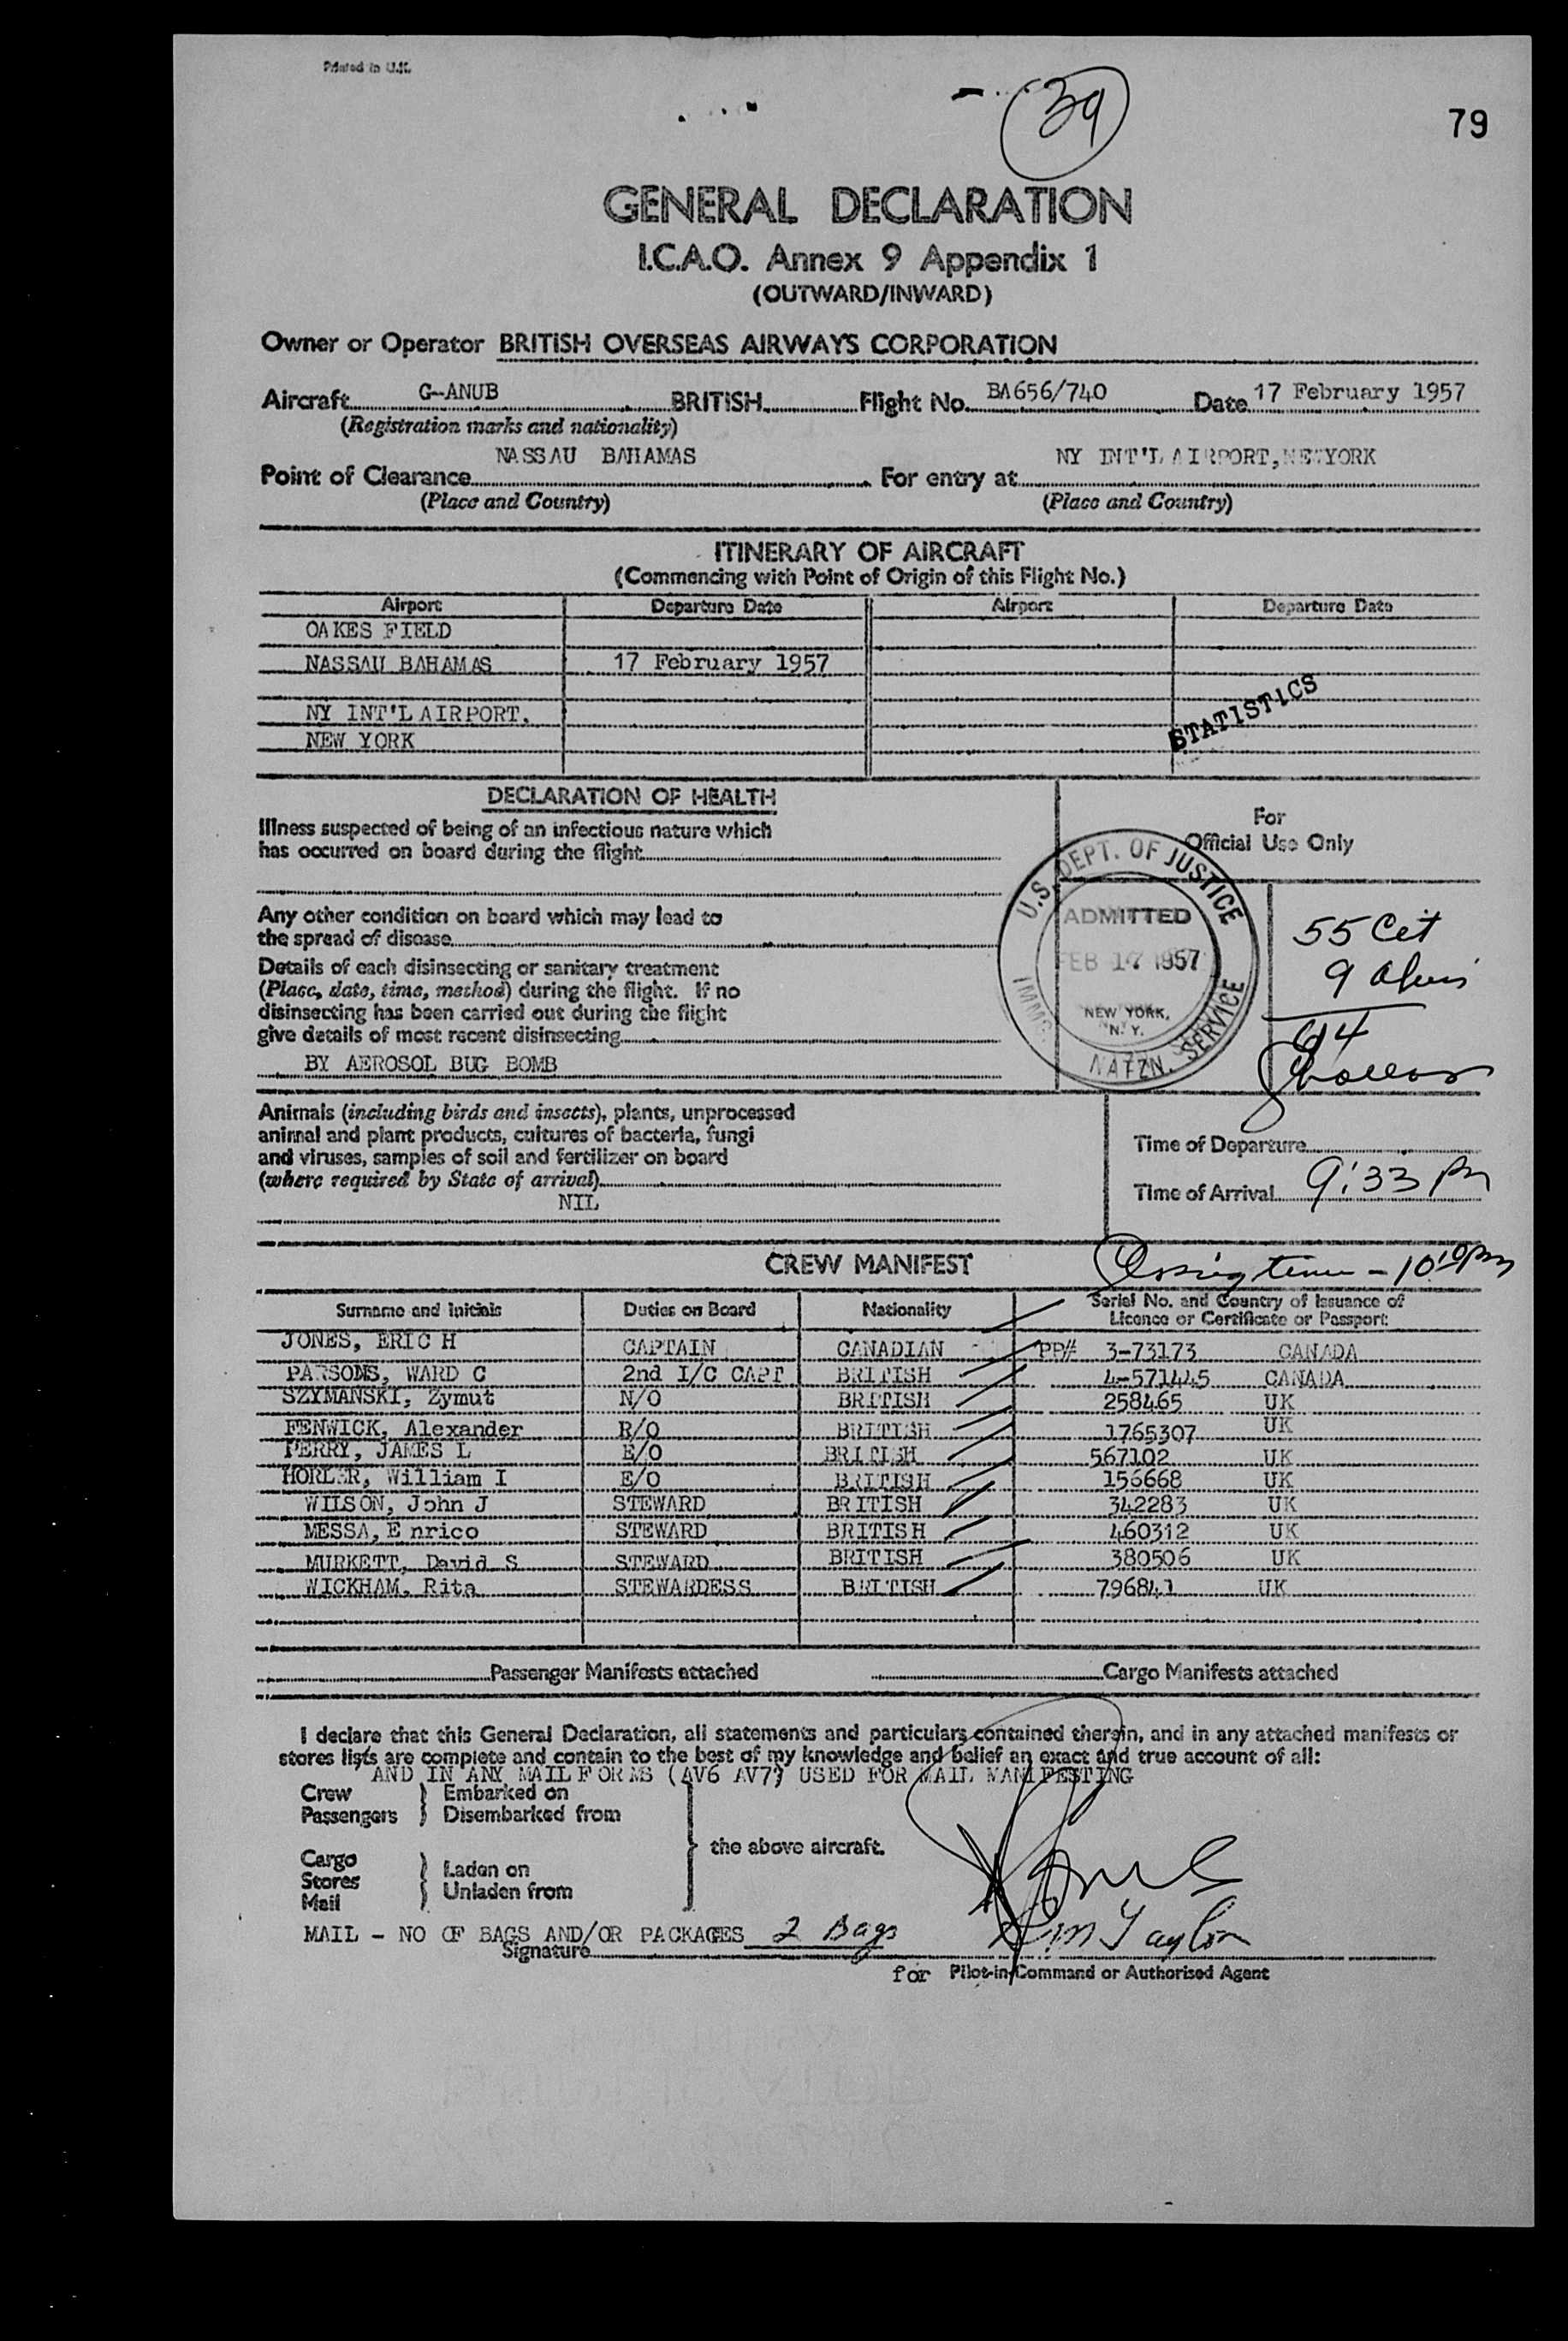 Printed in U.K.
39
79
GENERAL DECLARATION
I.C.A.O. Annex 9 Appendix 1
(OUTWARD/INWARD)
Owner or Operator BRITISH OVERSEAS AIRWAYS CORPORATION
Aircraft G-ANUB BRITISH Flight No. BA656/740 Date 17 February 1957
(Registration marks and nationality)
Point of Clearance NASSAU BAHAMAS For entry at NY INT'L AIRPORT, NEWYORK
(Place and Country) (Place and Country)
ITINERARY OF AIRCRAFT
(Commencing with Point of Origin of this Flight No.)
Airport Departure Date Airport Departure Date
OAKES FIELD
NASSAU BAHAMAS 17 February 1957
NY INT'L AIRPORT.
NEW YORK
STATISTICS
DECLARATION OF HEALTH
Illness suspected of being of an infectious nature which
has occurred on board during the flight
Any other condition on board which may lead to
the spread of disease
Details of each disinsecting or sanitary treatment
(Place, date, time, method) during the flight. If no
disinsecting has been carried out during the flight
give details of most recent disinsecting
BY AEROSOL BUG BOMB
For
Official Use Only
U.S. DEPT. OF JUSTICE
ADMITTED
FEB 17 1957
NEW YORK,
N. Y.
IMMG. NATZN. SERVICE
55 Cit
9 Aliens
64
Animals (including birds and insects), plants, unprocessed
animal and plant products, cultures of bacteria, fungi
and viruses, samples of soil and fertilizer on board
(where required by State of arrival)
NIL
Time of Departure
Time of Arrival 9:33 Pm
CREW MANIFEST
time - 10 10 pm
Surname and Initials Duties on Board Nationality Serial No. and Country of Issuance of
Licence or Certificate or Passport
JONES, ERIC H CAPTAIN CANADIAN PP# 3-73173 CANADA
PARSONS, WARD C 2nd I/C CAPT BRITISH 4-571445 CANADA
SZYMANSKI, Zymut N/O BRITISH 258465 UK
FENWICK, Alexander R/O BRITISH 1765307 UK
PERRY, JAMES L E/O BRITISH 567102 UK
HORLER, William I E/O BRITISH 156668 UK
WILSON, John J STEWARD BRITISH 342283 UK
MESSA, E nrico STEWARD BRITISH 460312 UK
MURKETT, David S STEWARD BRITISH 380506 UK
WICKHAM, Rita STEWARDESS BRITISH 796841 UK
Passenger Manifests attached Cargo Manifests attached
I declare that this General Declaration, all statements and particulars contained therein, and in any attached manifests or
stores lists are complete and contain to the best of my knowledge and belief an exact and true account of all:
AND IN ANY MAIL FORMS (AV6 AV7) USED FOR MAIL MANIFESTING
Crew
Passengers
Embarked on
Disembarked from
the above aircraft.
Cargo
Stores
Mail
Laden on
Unladen from
MAIL - NO OF BAGS AND/OR PACKAGES 2 Bags
Signature
Taylor
for Pilot-in-Command or Authorised Agent